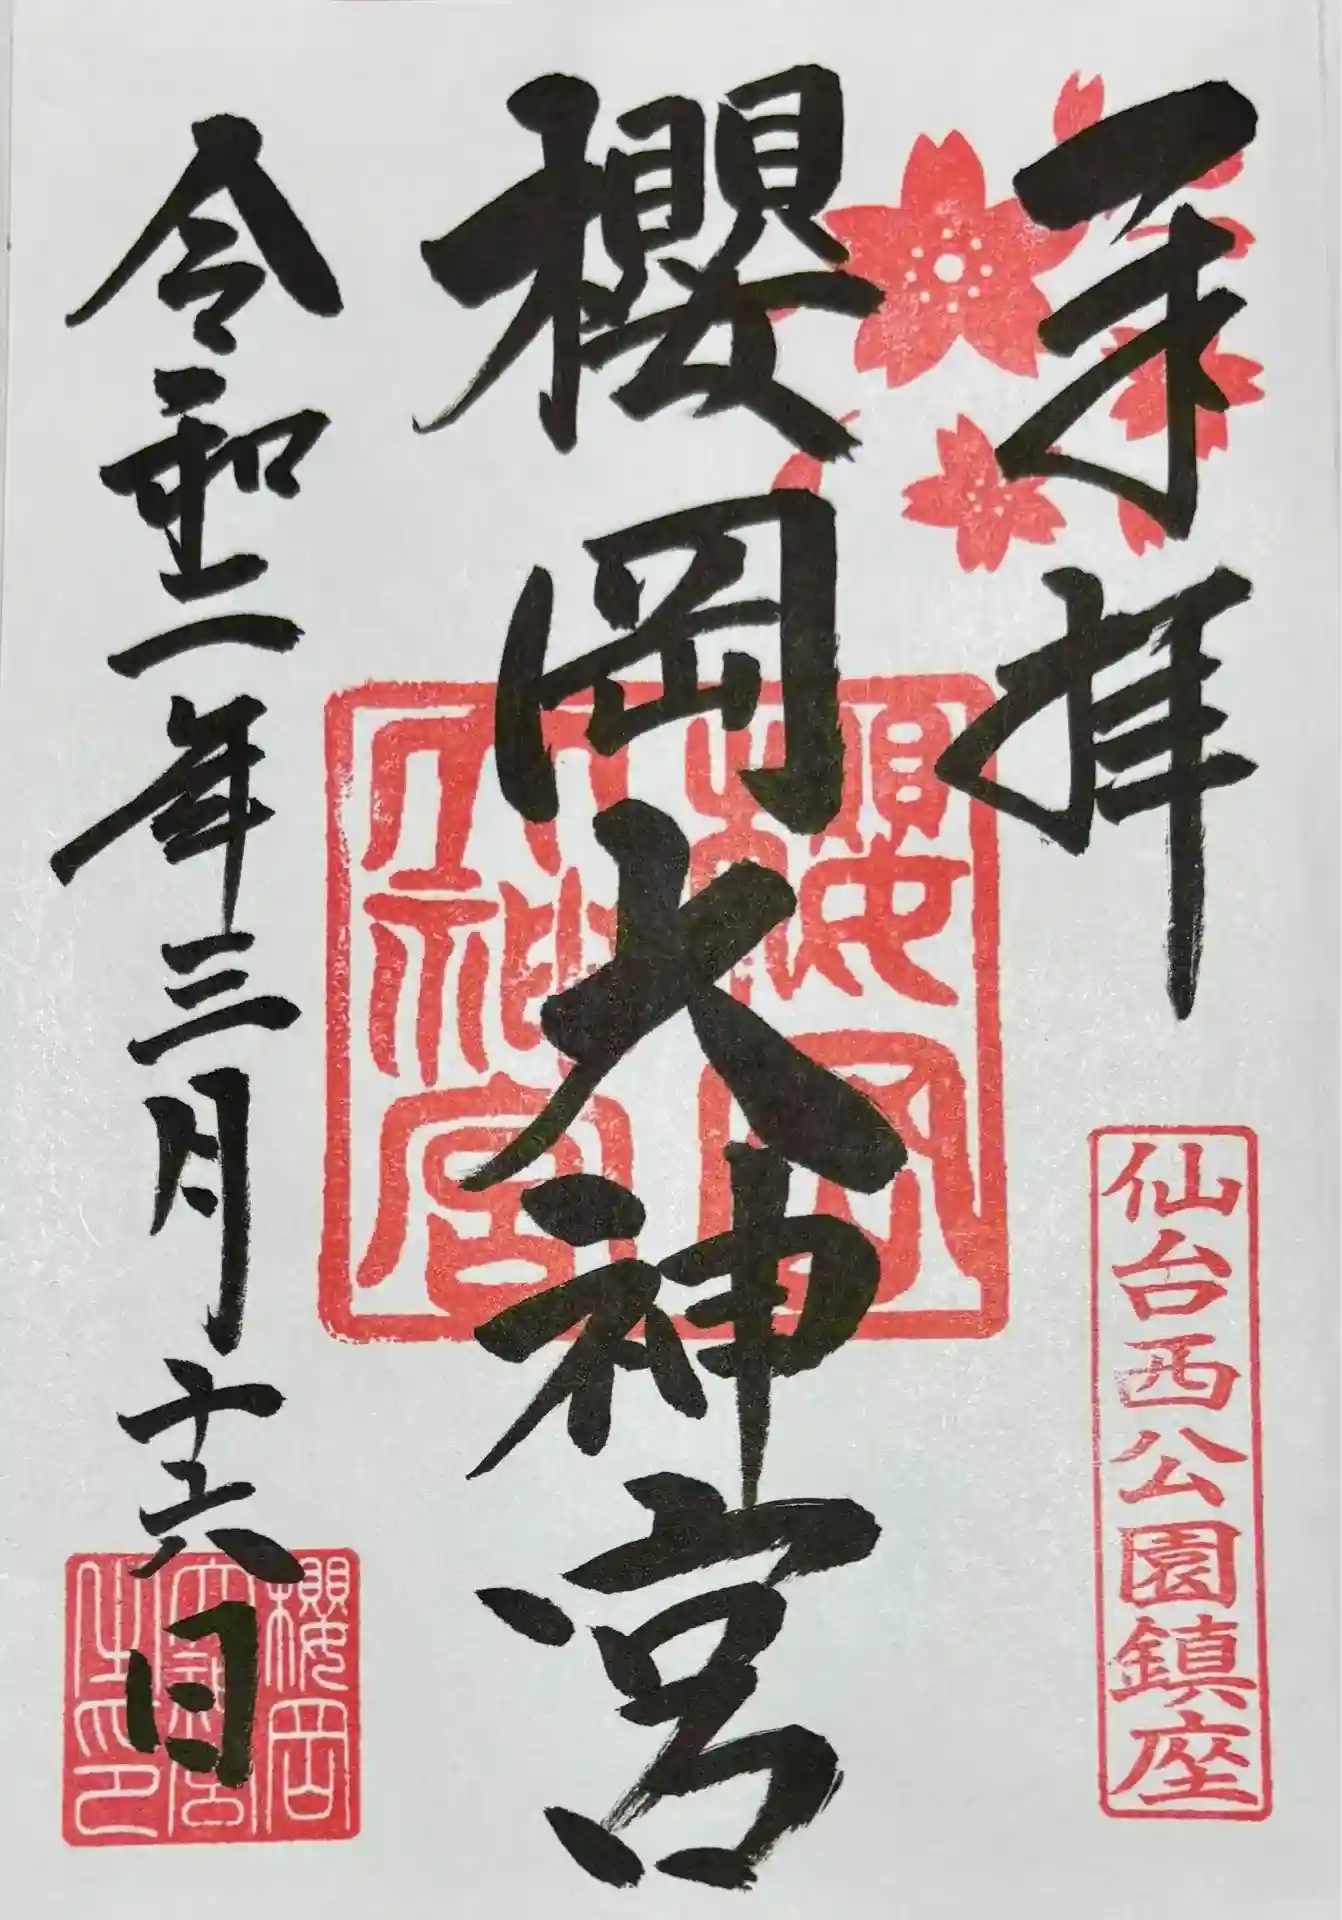 奉拝
仙台西公園鎮座
櫻岡大神宮
櫻岡
大神宮
令和二年三月十六日
櫻岡
大神宮
之印